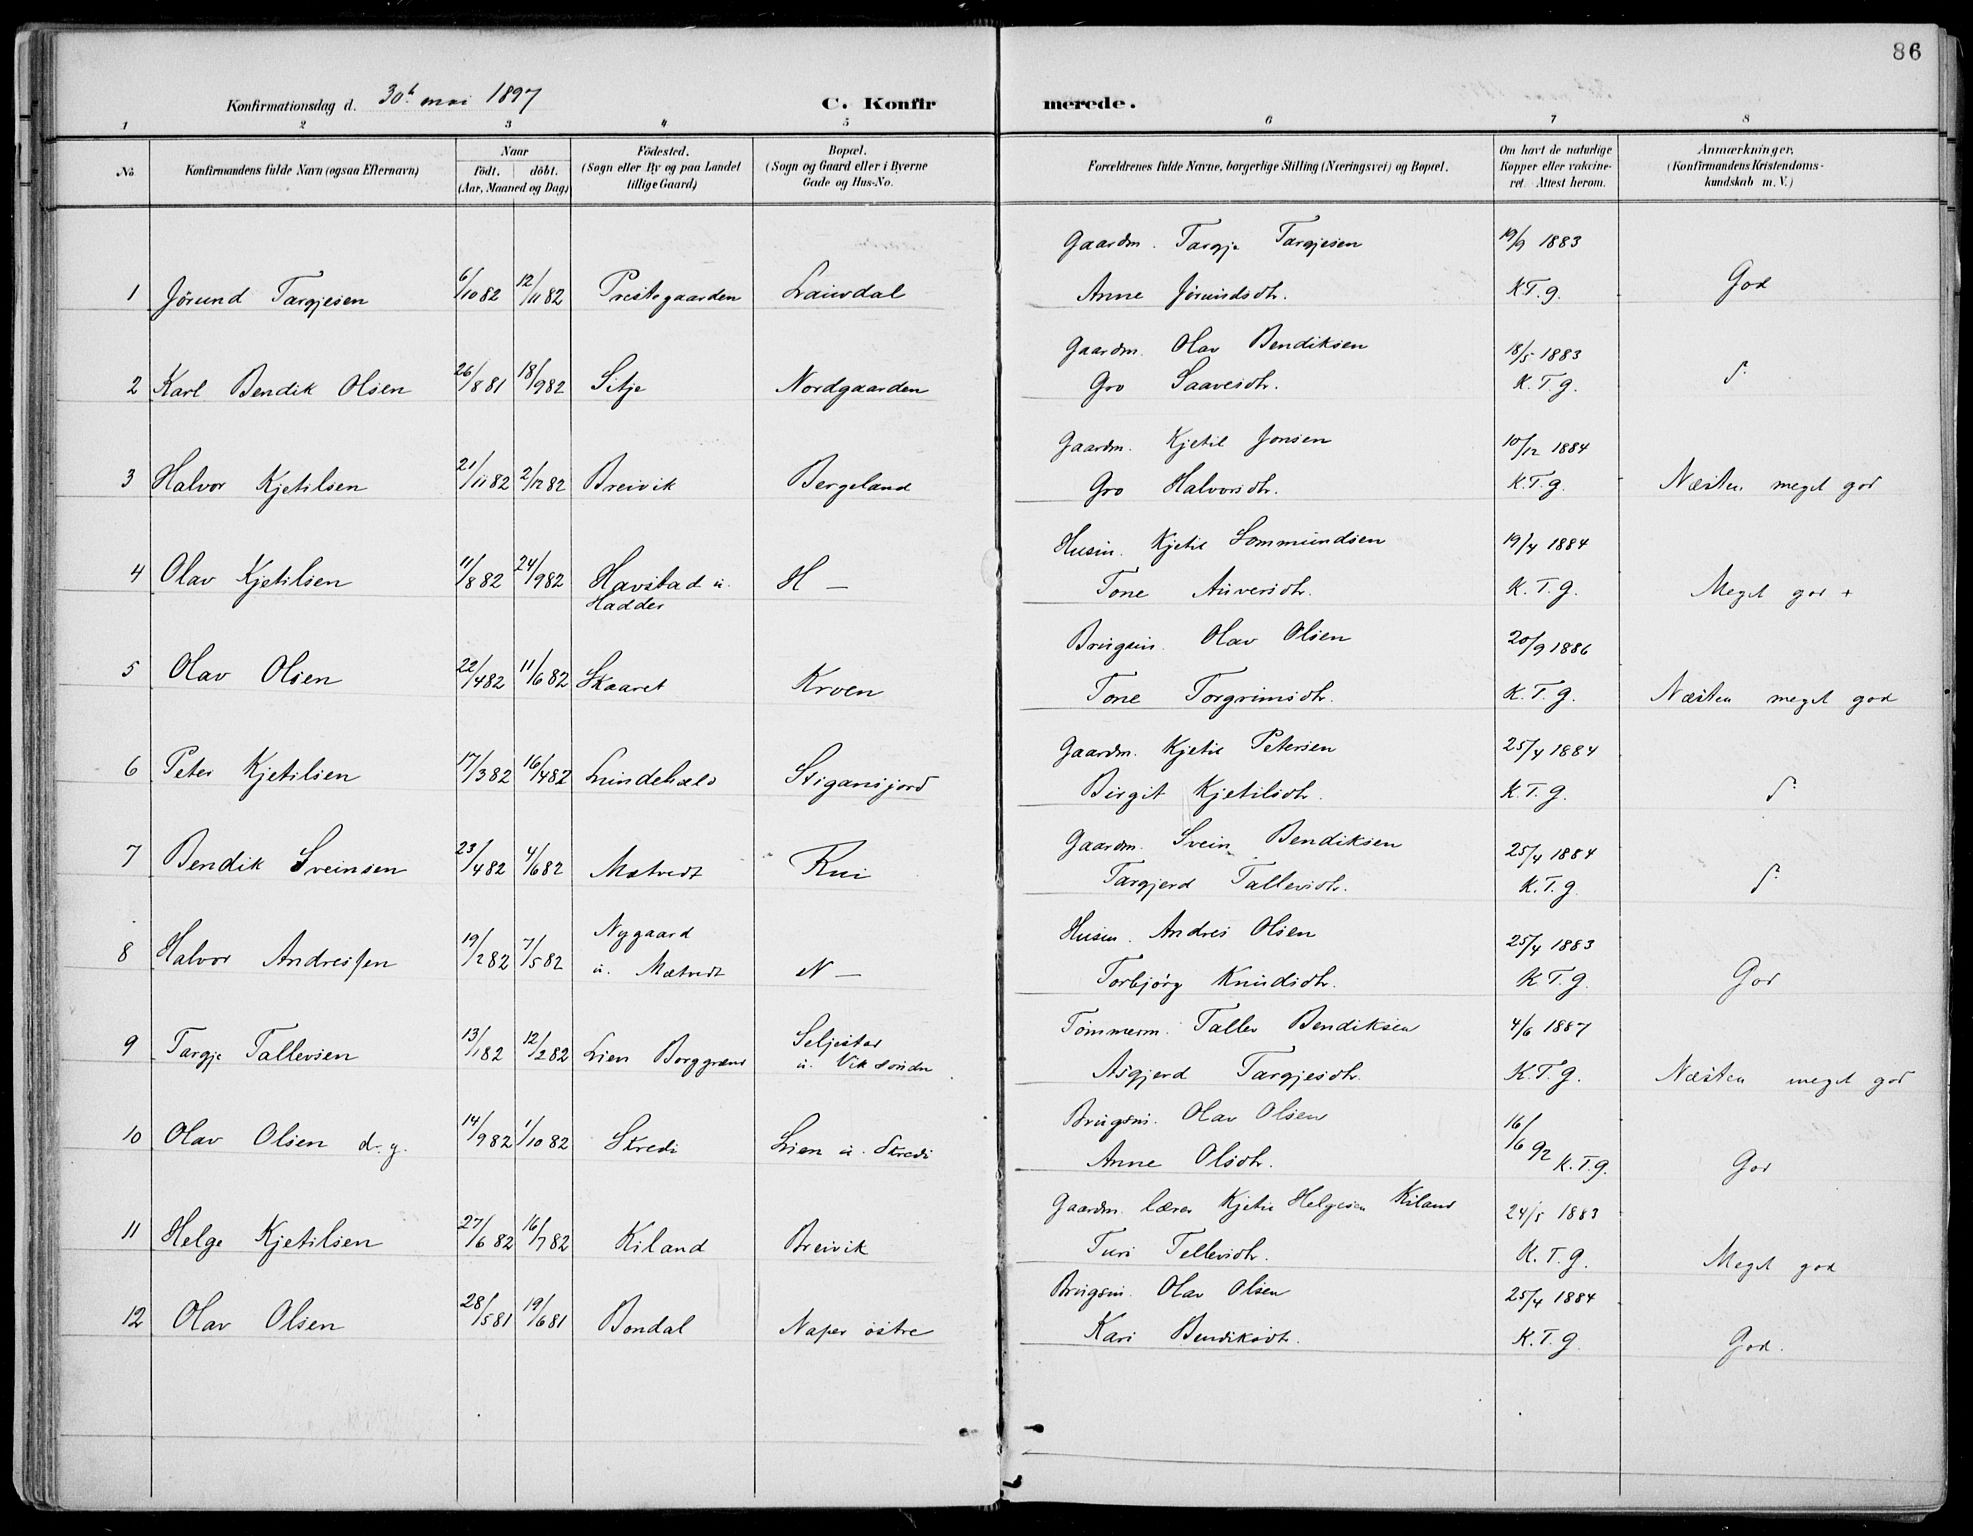 86
Konfirmationsdag d. 30t mai 1897 C. Konfirmerede.
1 2 3 4 5 6 7 8
No
Konfirmandens fulde Navn (ogsaa Efternavn)
Naar
födt. döbt.
(Aar, Maaned og Dag)
Födested.
(Sogn eller By og paa Landet
tillige Gaard)
Bopæl.
(Sogn og Gaard eller i Byerne
Gade og Hus-No.
Forældrenes fulde Navne, borgerlige Stilling (Næringsvei) og Bopæl.
Om havt de naturlige
Kopper eller vakcine-
ret. Attest herom.
Anmærkninger.
(Konfirmandens Kristendoms-
kundskab m. V.)
Gaardm. Targje Targjesen 19/9 1883
1 Jörund Targjesen 6/10 82 12/11 82 Prestegaarden Lauvdal Anne Jörundsdtr. K.T.g. God
Gaardm. Olav Bendiksen 18/5 1883
2 Karl Bendik Olsen 26/8 81 18/9 82 Sitje Nordgaarden Gro Saavesdtr. K.T.g.
Gaardm. Kjetil Jonsen 10/12 1884
3 Halvor Kjetilsen 21/11 82 2/12 82 Breivik Bergeland Gro Halvorsdtr. K.T.g. Næsten meget god
Husm. Kjetil Gommundsen 19/4 1884
4 Olav Kjetilsen 11/8 82 24/9 82 Havstad u. H — Tone Auversdtr. K.T.g. Meget god +
Hadder
Brugsm. Olav Olsen 20/9 1886
5 Olav Olsen 22/4 82 11/6 82 Skaaret Kroen Tone Torgrimsdtr. K.T.g. Næsten meget god
Gaardm. Kjetil Petersen 25/4 1884
6 Peter Kjetilsen 17/3 82 16/4 82 Stigansjord Birgit Kjetilsdtr. K.T.g.
Gaardm. Svein Bendiksen 25/4 1884
7 Bendik Sveinsen 23/4 82 4/6 82 Mætvedt Rui Targjerd Tallevsdtr. K.T.g.
Nygaard Husm. Andres Olsen 25/4 1883
8 Halvor Andresen 19/2 82 7/5 82 u. Mætvedt N — Torbjörg Knudsdtr. K.T.g. God
Seljestad Tömmerm. Tallev Bendiksen 4/6 1887
9 Targje Tallevsen 13/1 82 12/2 82 Lien Borggrend u. Vik söndre Asgjerd Targjesdtr. K.T.g. Næsten meget god
Brugsm. Olav Olsen 16/6 92
10 Olav Olsen d. y. 14/9 82 1/10 82 Skredi Lien u. Skredi Anne Olsdtr. K.T.g. God
Gaardm. lærer Kjetil Helgesen Kiland 24/5 1883
11 Helge Kjetilsen 27/6 82 16/7 82 Kiland Breivik Turi Tellevsdtr. K.T.g. Meget god
Brugsm. Olav Olsen 25/4 1884
12 Olav Olsen 28/5 81 19/6 81 Bondal Naper östre Kari Bendiksdtr. K.T.g. God.